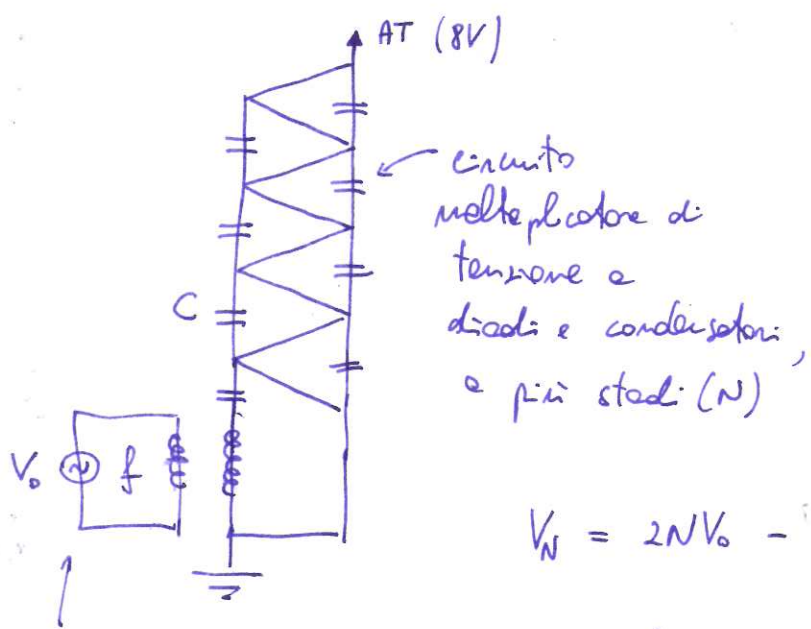 AT (8V)
circuito
moltiplicatore di
tensione a
diodi e condensatori,
a più stadi (N)
C
V₀
f
V_N = 2NV₀ -